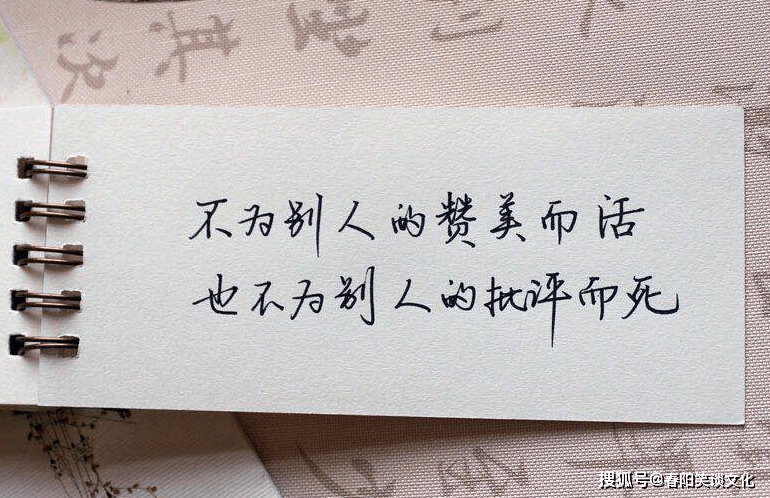 不为别人的赞美而活
也不为别人的批评而死
搜狐号@春阳笑谈文化